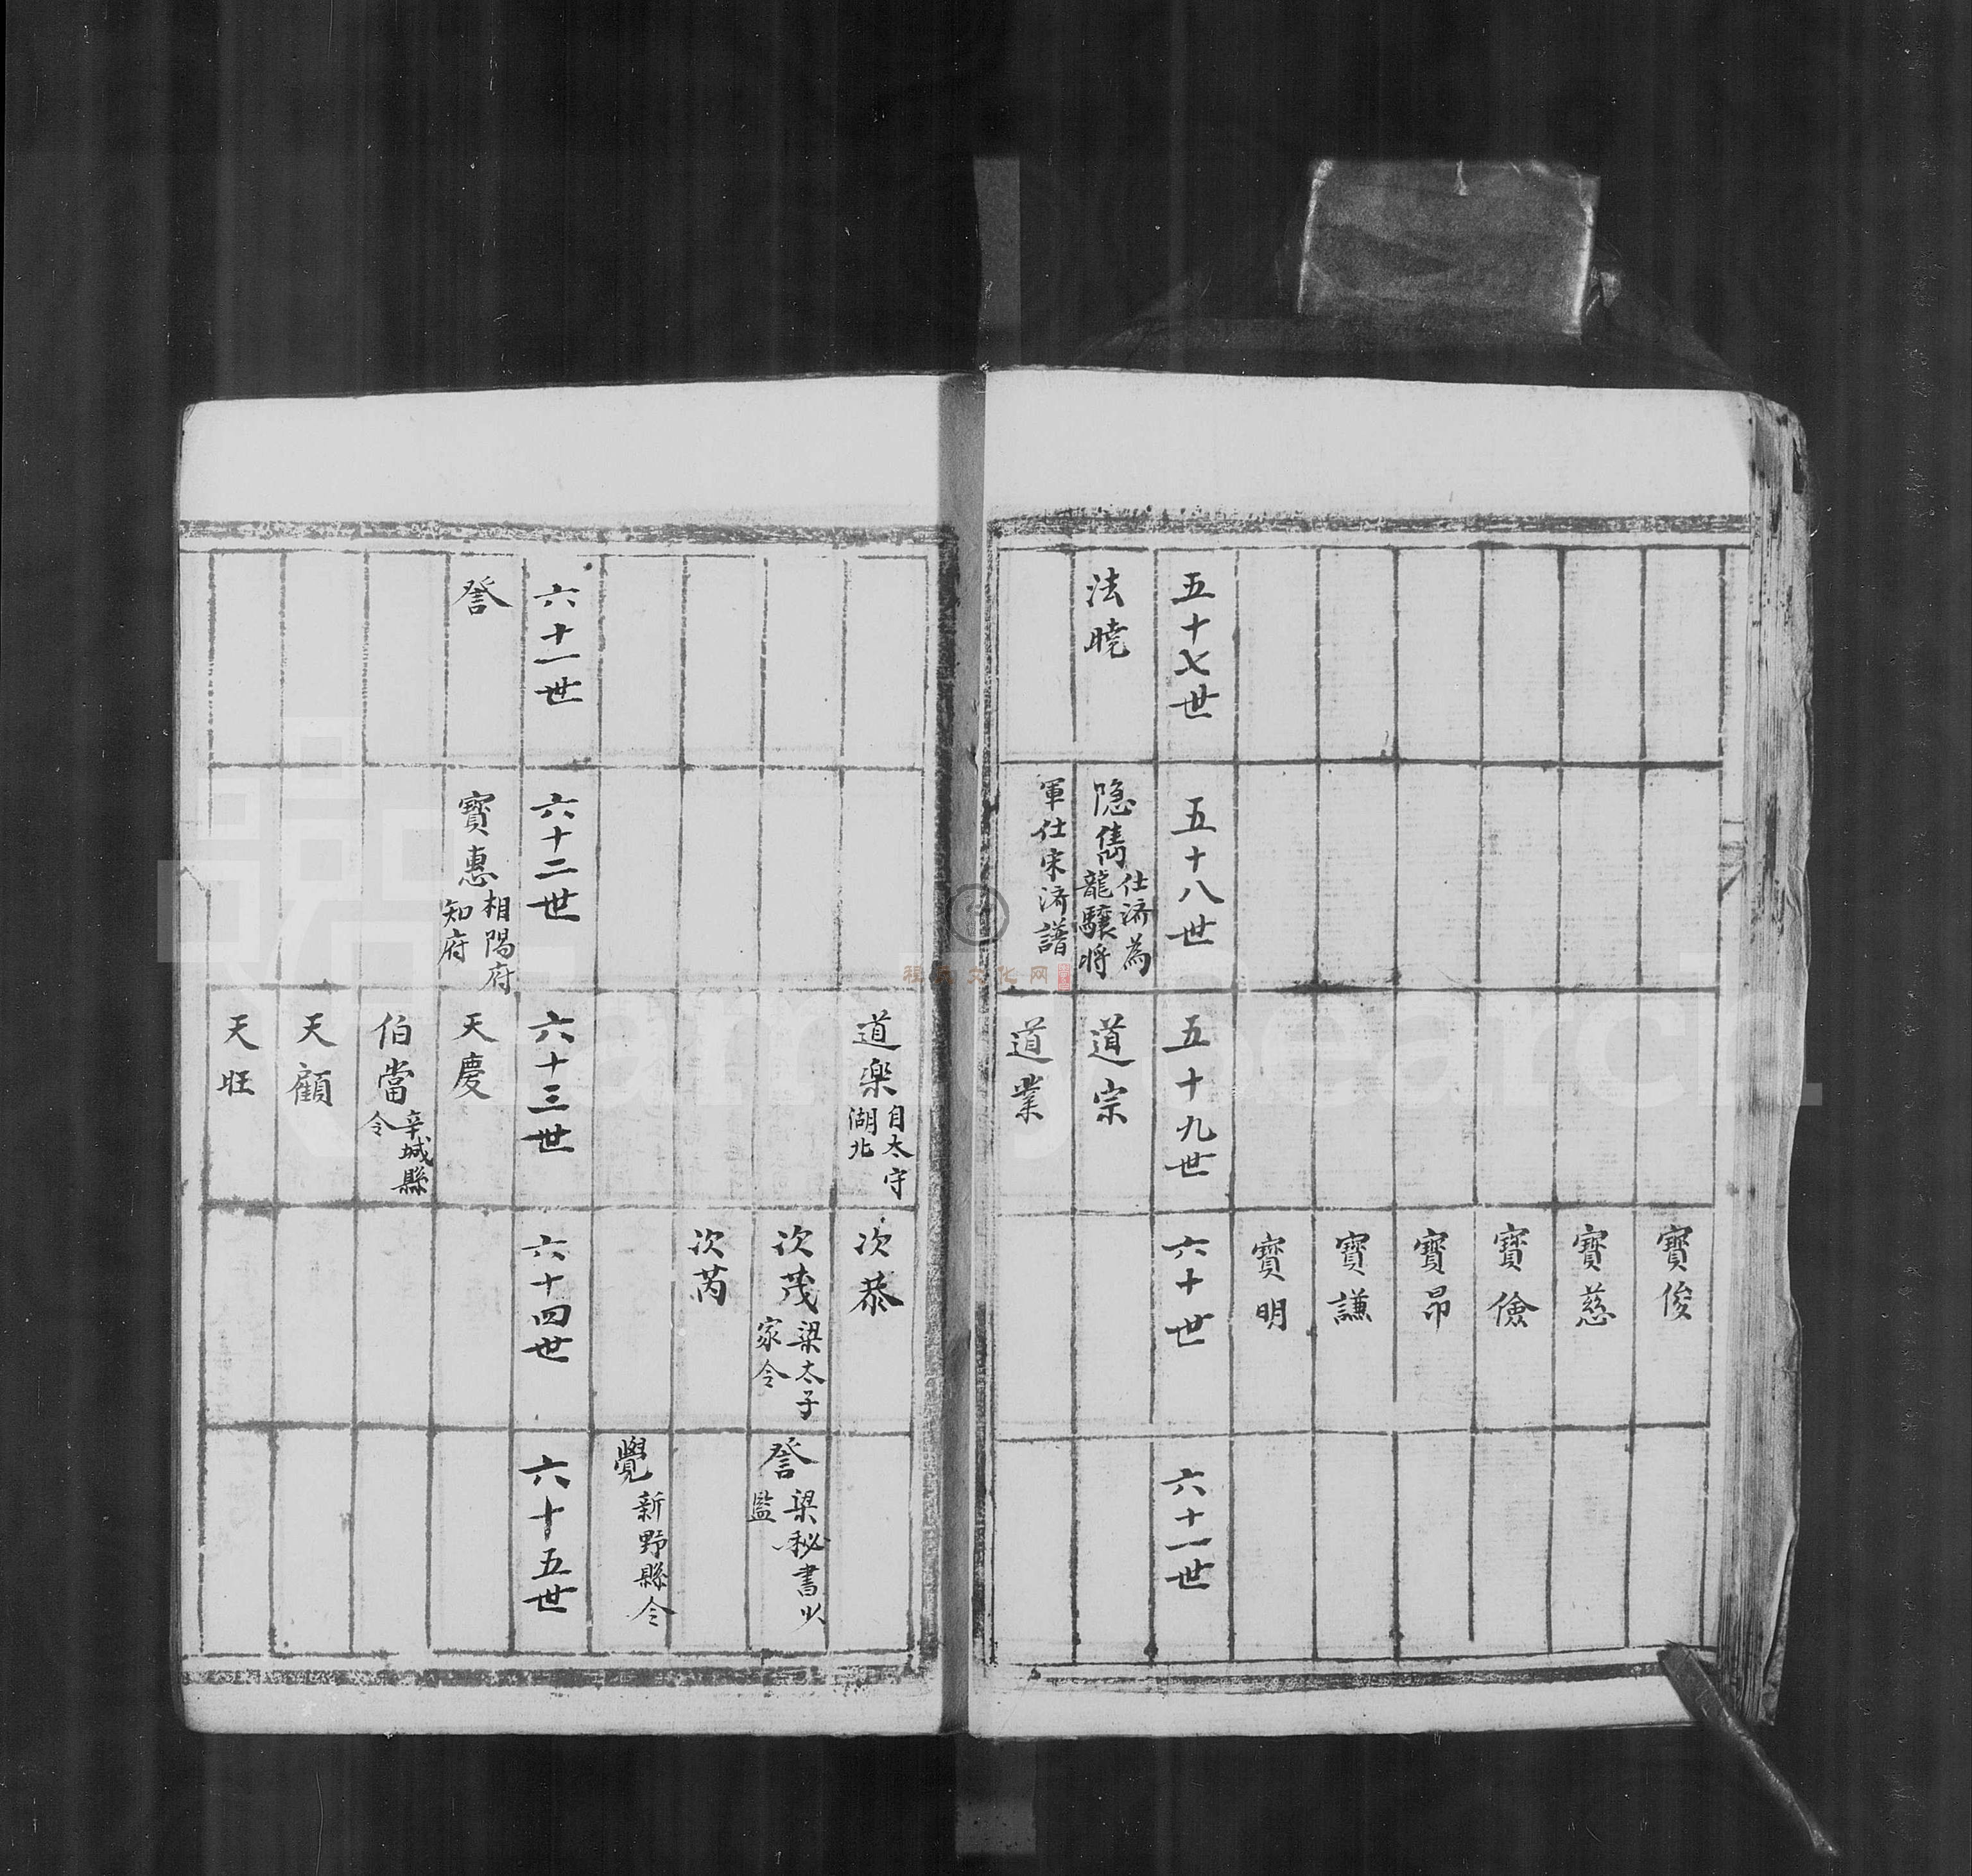 寶俊
寶慈
寶儉
寶昂
寶謙
寶明
五十七世
五十八世
五十九世
六十世
六十一世
法曉
隐雋
仕济為
龍驤将
道宗
軍仕宋济譜
道業
道楽
自太守
湖北
次恭
次茂
梁太子
家令
詧
梁秘書少
監
次芮
覺
新野縣令
六十一世
六十二世
六十三世
六十四世
六十五世
詧
寶惠
相陽府
知府
天慶
伯當
辛城縣
令
天顧
天旺